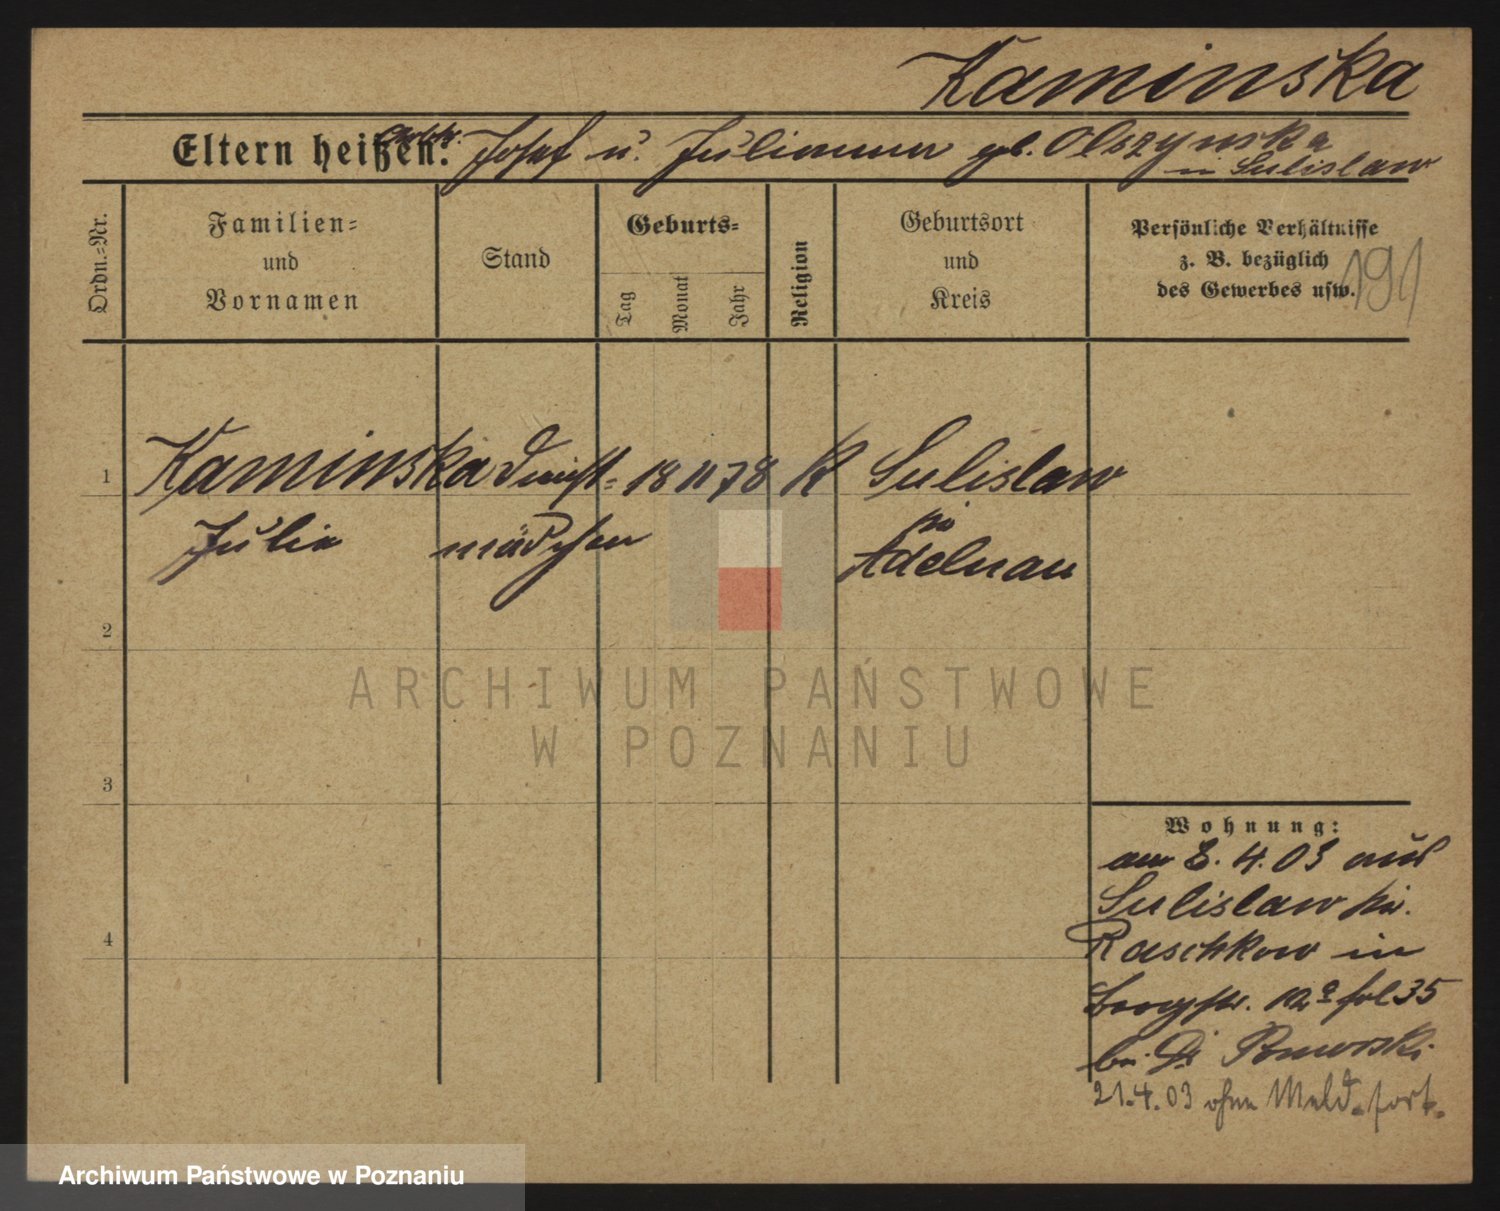 Kaminska
Eltern heißen: Josef u. Julianna gb. Olszynska
in Sulislaw
Ordn.-Nr.
Familien-
und
Vornamen
Stand
Geburts-
Tag
Monat
Jahr
Religion
Geburtsort
und
Kreis
Persönliche Verhältnisse
z. B. bezüglich
des Gewerbes usw.
191
1 Kaminska Dienst- 18 11 78 K Sulislaw
Julia mädchen Kr
Adelnau
2
3
4
ARCHIWUM PAŃSTWOWE
W POZNANIU
Wohnung:
am 8. 4. 03 aus
Sulislaw Kr.
Raschkow in
12a fol 35
bei Dr Pomorski
21.4.03 ohne Meld. fort.
Archiwum Państwowe w Poznaniu